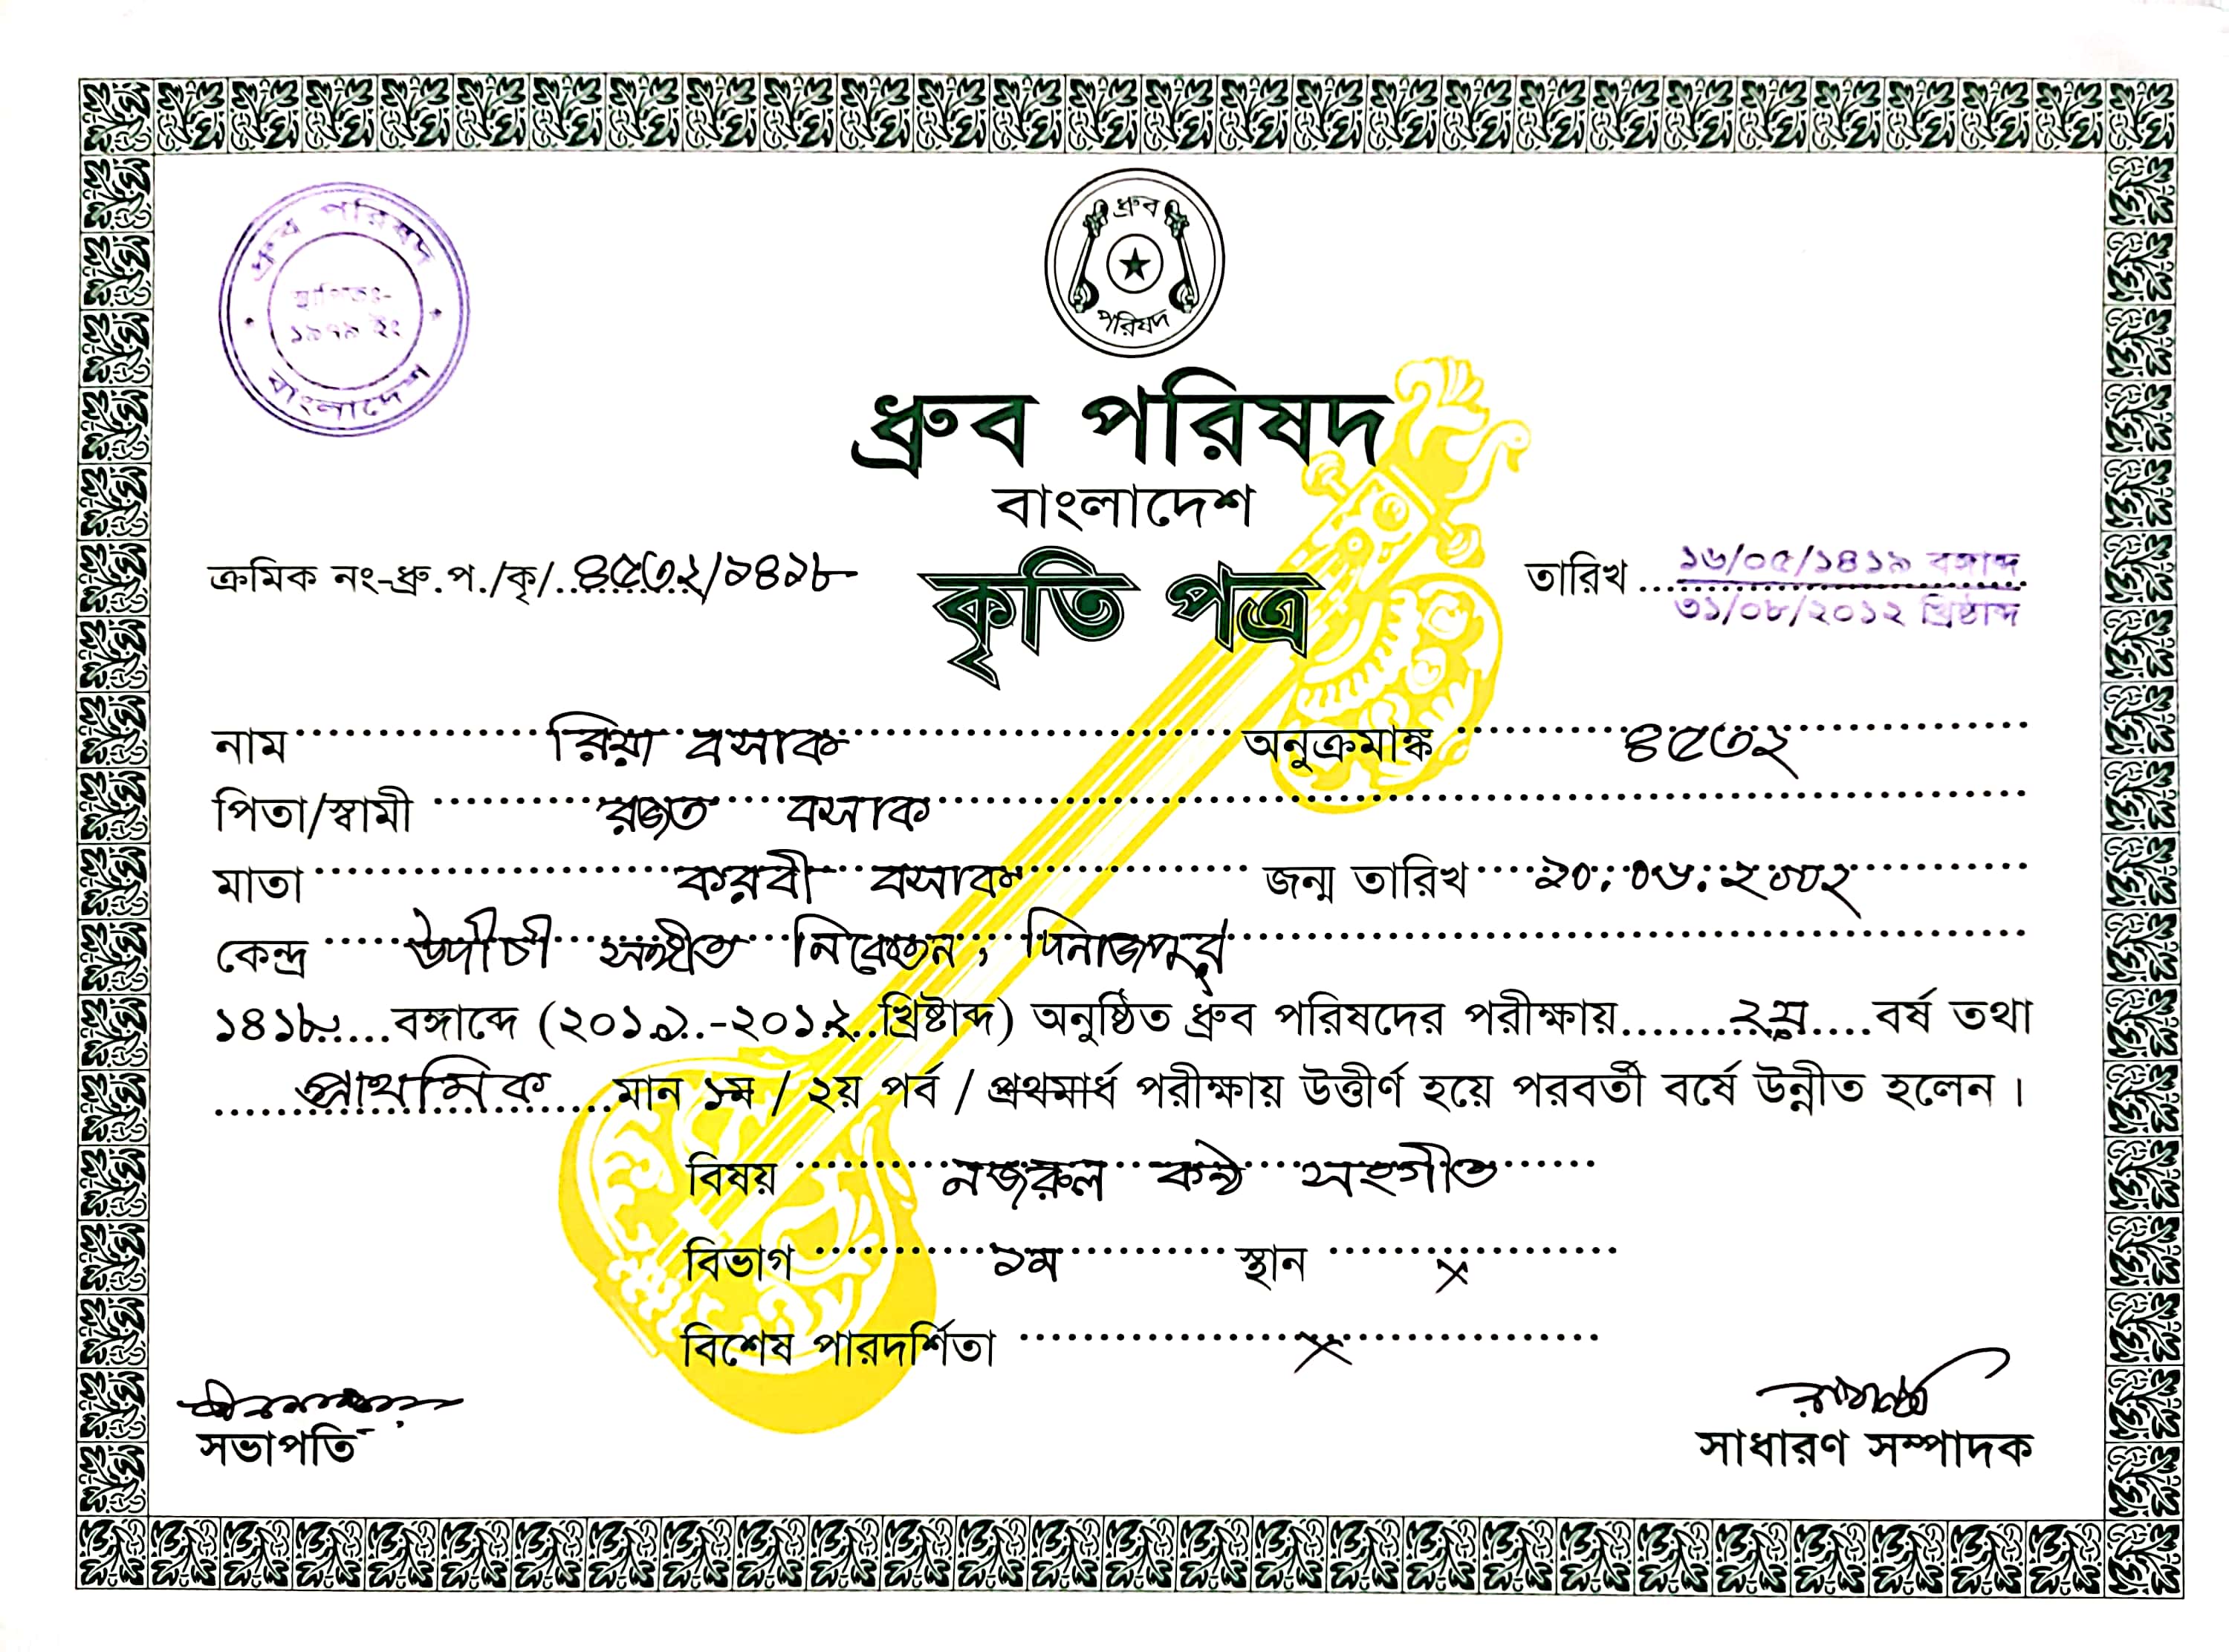 ধ্রুব পরিষদ
স্থাপিতঃ-
১৯৭৯ ইং
বাংলাদেশ
ধ্রুব
পরিষদ
ধ্রুব পরিষদ
বাংলাদেশ
ক্রমিক নং-ধ্রু.প./কৃ/..৪৫৩২/১৪১৮
কৃতি পত্র
তারিখ ... ১৬/০৫/১৪১৯ বঙ্গাব্দ
৩১/০৮/২০১২ খ্রিষ্ঠাব্দ
নাম রিয়া বসাক অনুক্রমাঙ্ক ৪৫৩২
পিতা/স্বামী রজত বসাক
মাতা করবী বসাক জন্ম তারিখ ২০.০৬.২০০২
কেন্দ্র উদীচী সঙ্গীত নিকেতন, দিনাজপুর
১৪১৮.....বঙ্গাব্দে (২০১১..-২০১২..খ্রিষ্টাব্দ) অনুষ্ঠিত ধ্রুব পরিষদের পরীক্ষায়.......২য়....বর্ষ তথা
প্রাথমিক মান ১ম / ২য় পর্ব / প্রথমার্ধ পরীক্ষায় উত্তীর্ণ হয়ে পরবর্তী বর্ষে উন্নীত হলেন।
বিষয় নজরুল কন্ঠ সংগীত
বিভাগ ১ম স্থান ×
বিশেষ পারদর্শিতা ×
সভাপতি
সাধারণ সম্পাদক